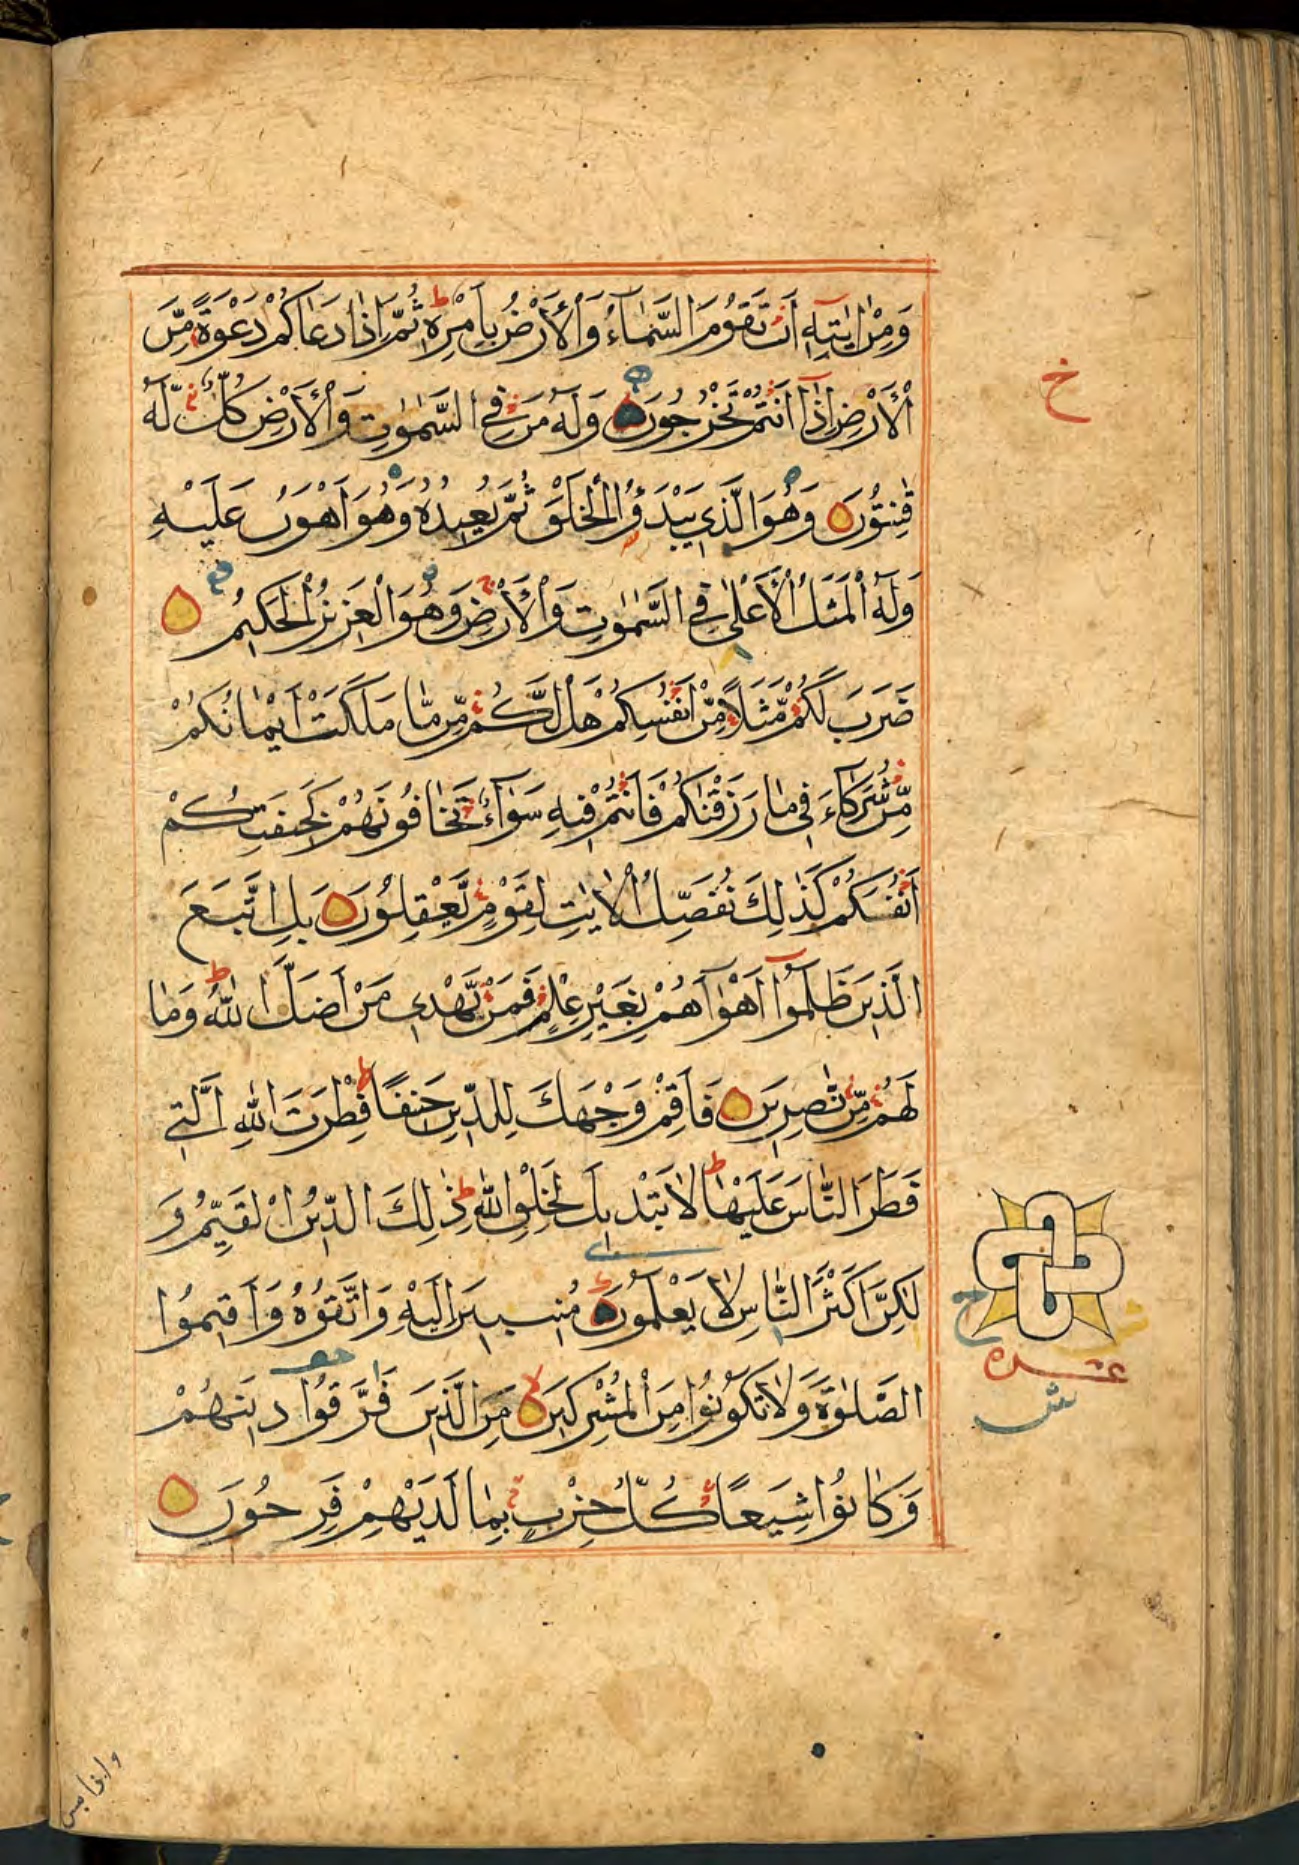 وَمِنْ اٰيٰتِهٖ اَنْ تَقُوْمَ السَّمَآءُ وَالْاَرْضُ بِاَمْرِهٖ ط ثُمَّ اِذَا دَعَاكُمْ دَعْوَةً مِّنَ
الْاَرْضِ اِذَآ اَنْتُمْ تَخْرُجُوْنَ وَلَهٗ مَنْ فِي السَّمٰوٰتِ وَالْاَرْضِ كُلٌّ لَّهٗ
قٰنِتُوْنَ وَهُوَ الَّذِي يَبْدَؤُا الْخَلْقَ ثُمَّ يُعِيْدُهٗ وَهُوَ اَهْوَنُ عَلَيْهِ
وَلَهُ الْمَثَلُ الْاَعْلٰى فِي السَّمٰوٰتِ وَالْاَرْضِ ج وَهُوَ الْعَزِيْزُ الْحَكِيْمُ
ضَرَبَ لَكُمْ مَّثَلًا مِّنْ اَنْفُسِكُمْ هَلْ لَّكُمْ مِّنْ مَّا مَلَكَتْ اَيْمَانُكُمْ
مِّنْ شُرَكَآءَ فِي مَا رَزَقْنٰكُمْ فَاَنْتُمْ فِيْهِ سَوَآءٌ تَخَافُوْنَهُمْ كَخِيْفَتِكُمْ
اَنْفُسَكُمْ كَذٰلِكَ نُفَصِّلُ الْاٰيٰتِ لِقَوْمٍ يَّعْقِلُوْنَ بَلِ اتَّبَعَ
الَّذِيْنَ ظَلَمُوْٓا اَهْوَآءَهُمْ بِغَيْرِ عِلْمٍ فَمَنْ يَّهْدِي مَنْ اَضَلَّ اللّٰهُ ط وَمَا
لَهُمْ مِّنْ نّٰصِرِيْنَ فَاَقِمْ وَجْهَكَ لِلدِّيْنِ حَنِيْفًا ط فِطْرَتَ اللّٰهِ الَّتِي
فَطَرَ النَّاسَ عَلَيْهَا ط لَا تَبْدِيْلَ لِخَلْقِ اللّٰهِ ط ذٰلِكَ الدِّيْنُ الْقَيِّمُ وَ
لٰكِنَّ اَكْثَرَ النَّاسِ لَا يَعْلَمُوْنَ مُنِيْبِيْنَ اِلَيْهِ وَاتَّقُوْهُ وَاَقِيْمُوا
الصَّلٰوةَ وَلَا تَكُوْنُوْا مِنَ الْمُشْرِكِيْنَ لا مِنَ الَّذِيْنَ فَرَّقُوْا دِيْنَهُمْ
وَكَانُوْا شِيَعًا كُلُّ حِزْبٍ بِمَا لَدَيْهِمْ فَرِحُوْنَ
خ
ح
عشره